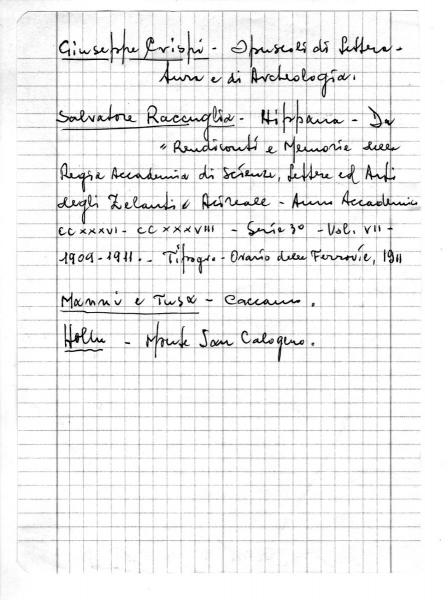 Giuseppe Crispi - Opuscoli di Lettera-
tura e di Archeologia.
Salvatore Raccuglia - Hippana - Da
"Rendiconti e Memorie della
Regia Accademia di Scienze, Lettere ed Arti
degli Zelanti Acireale - Anno Accademico
CCXXXVI - CCXXXVIII - Serie 3° - Vol. VII -
1909-1911. - Tipogr. Orario delle Ferrovie, 1911
Mannu e Tusa - Caccamo.
Holm - Monte San Calogero.